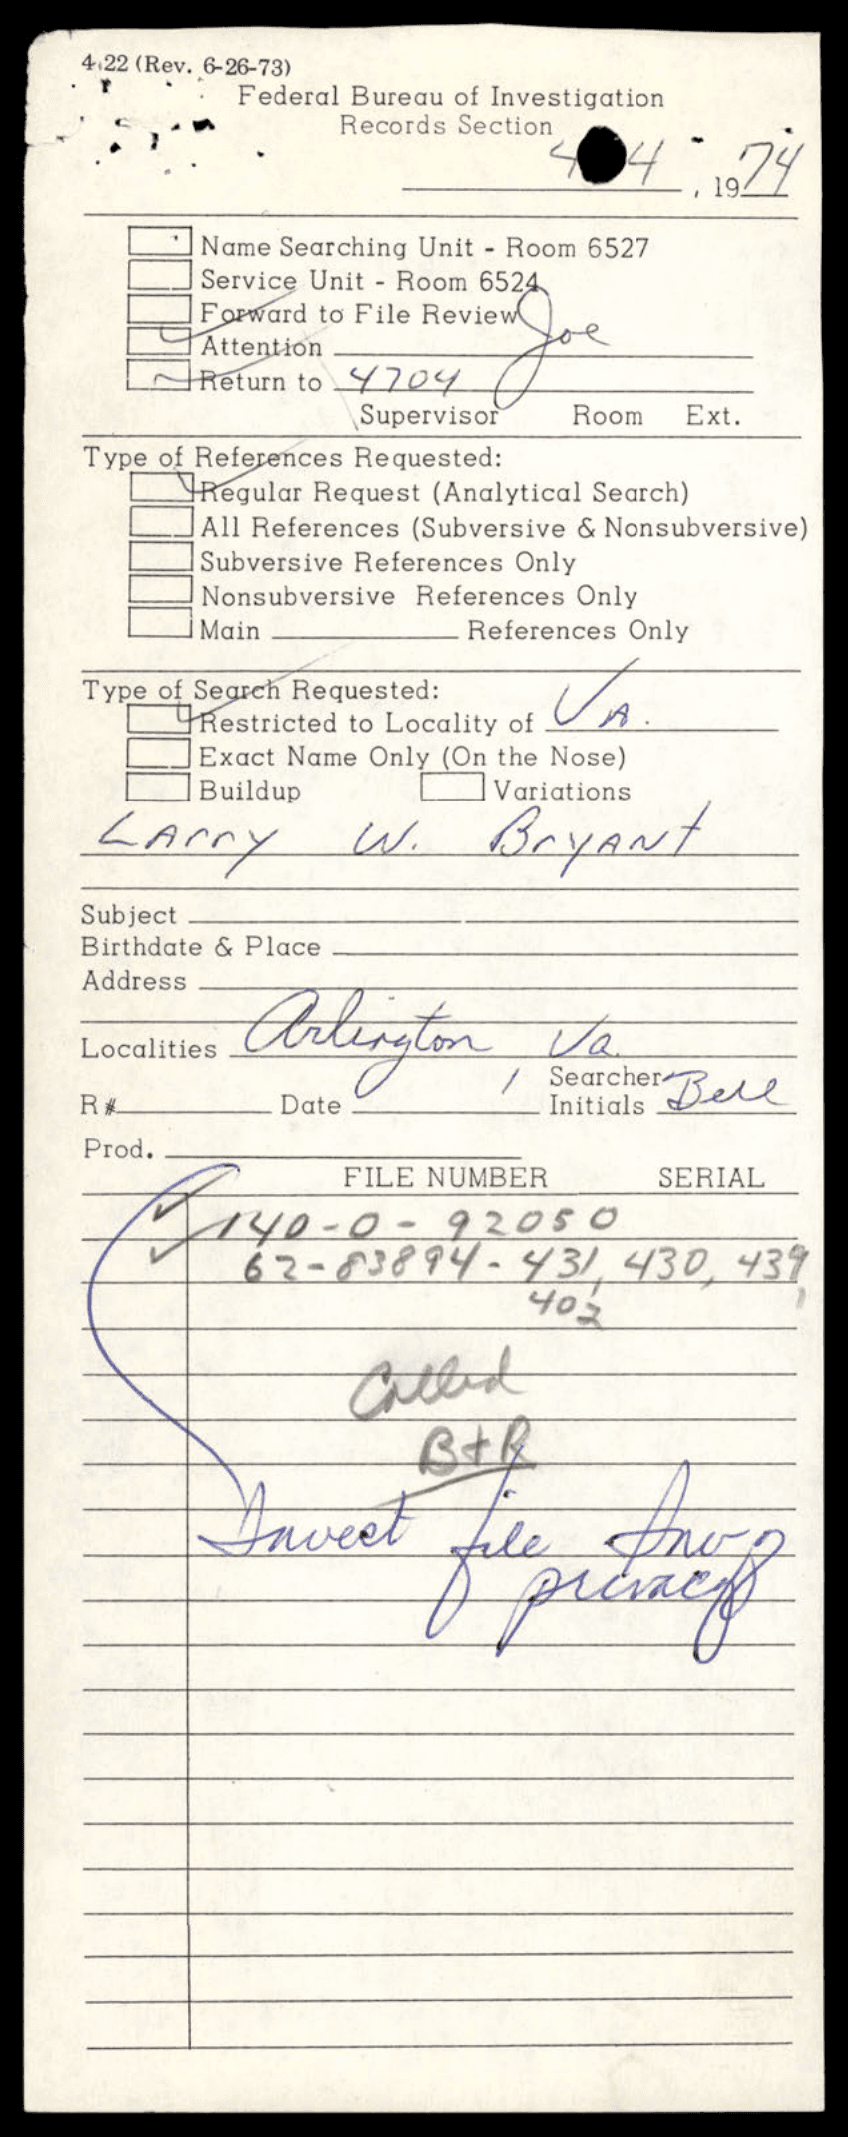 4-22 (Rev. 6-26-73)
Federal Bureau of Investigation
Records Section
4 4, 1974
Name Searching Unit - Room 6527
Service Unit - Room 6524
Forward to File Review
Attention Joe
Return to 4704
Supervisor Room Ext.
Type of References Requested:
Regular Request (Analytical Search)
All References (Subversive & Nonsubversive)
Subversive References Only
Nonsubversive References Only
Main References Only
Type of Search Requested:
Restricted to Locality of VA.
Exact Name Only (On the Nose)
Buildup Variations
Larry W. Bryant
Subject
Birthdate & Place
Address
Localities Arlington, Va.
R# Date Searcher Initials Bell
Prod.
FILE NUMBER SERIAL
140-0-92050
62-83894-431, 430, 439,
402
Called
B+R
Invest file
privacy